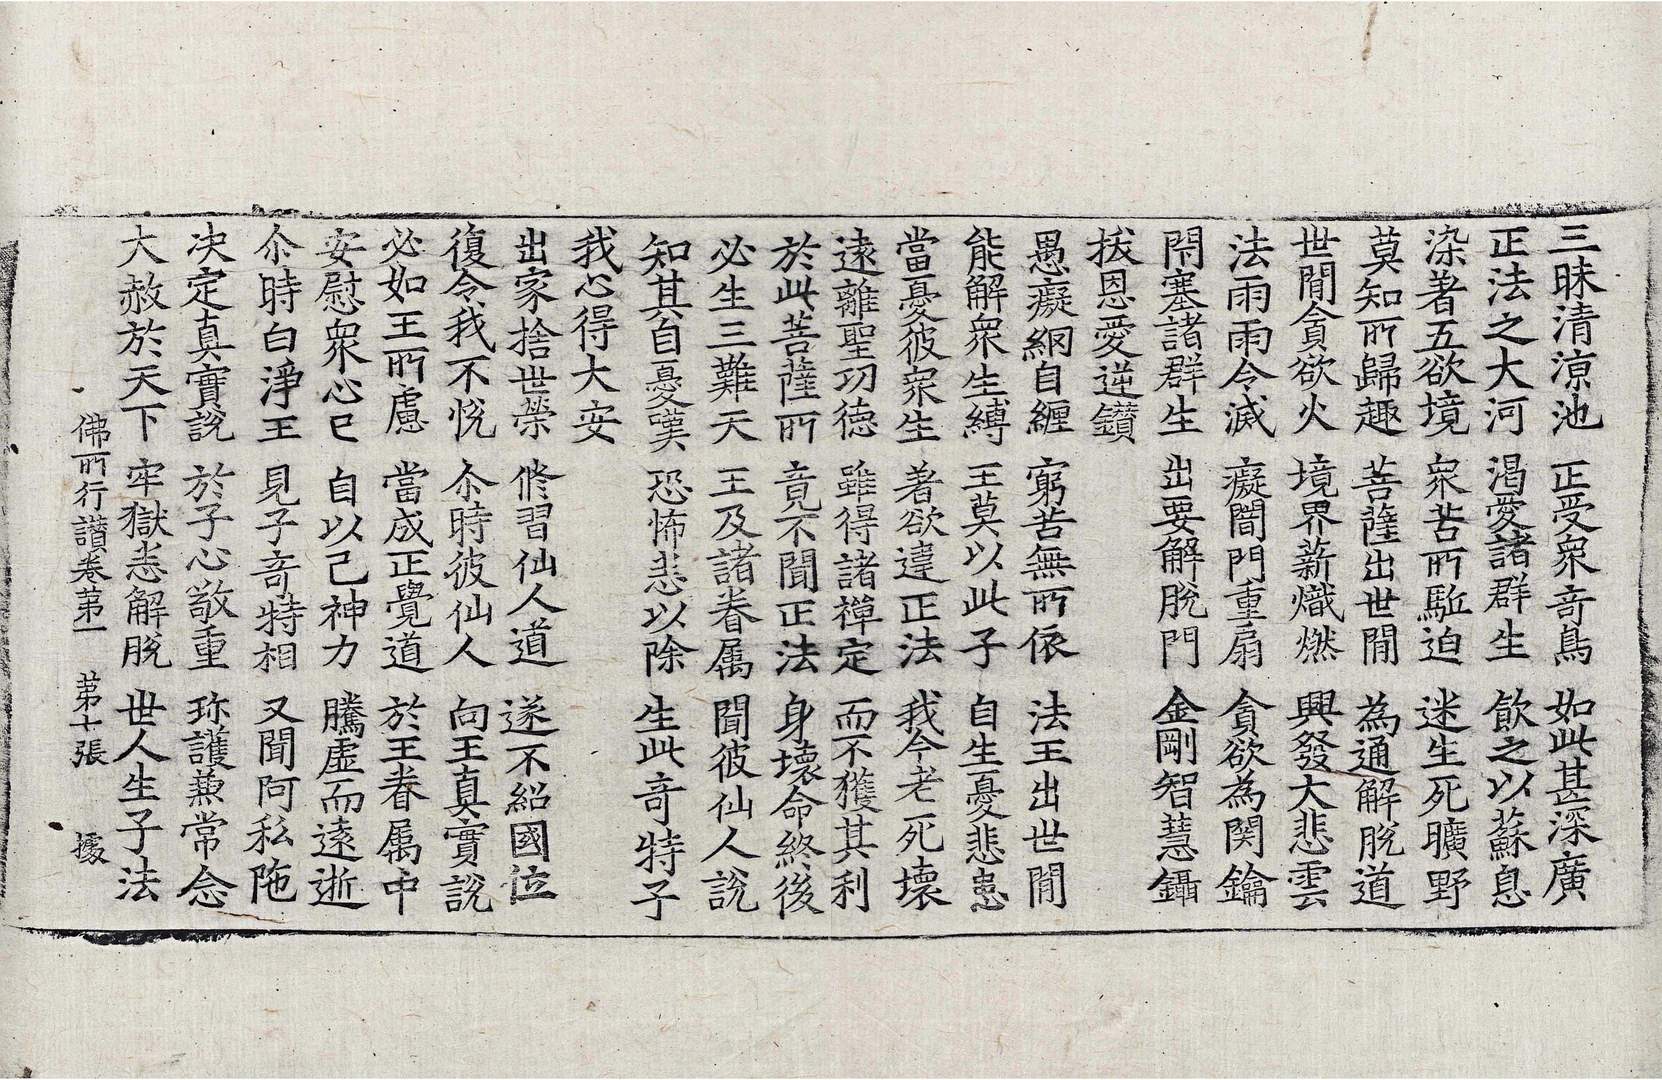 三昧清涼池 正受衆竒鳥 如此甚深廣
正法之大河 渴愛諸群生 飲之以蘇息
染著五欲境 衆苦所駈迫 迷生死曠野
莫知所歸趣 菩薩出世閒 為通解脫道
世閒貪欲火 境界薪熾燃 興發大悲雲
法雨雨令滅 癡闇門重扇 貪欲為関鑰
閇塞諸群生 出要解脫門 金剛智慧鑷
拔恩愛逆鑽
愚癡網自纏 窮苦無所依 法王出世閒
能解衆生縛 王莫以此子 自生憂悲患
當憂彼衆生 著欲違正法 我今老死壞
遠離聖功德 雖得諸禪定 而不獲其利
於此菩薩所 竟不聞正法 身壞命終後
必生三難天 王及諸眷属 聞彼仙人說
知其自憂嘆 恐怖悉以除 生此竒特子
我心得大安
出家捨世榮 修習仙人道 遂不紹國位
復令我不悅 尒時彼仙人 向王真實說
必如王所慮 當成正覺道 於王眷属中
安慰衆心已 自以己神力 騰虛而遠逝
尒時白淨王 見子竒特相 又聞阿私陁
决定真實說 於子心敬重 珎護兼常念
大赦於天下 牢獄悉解脫 世人生子法
佛所行讃卷苐一 苐十張 據